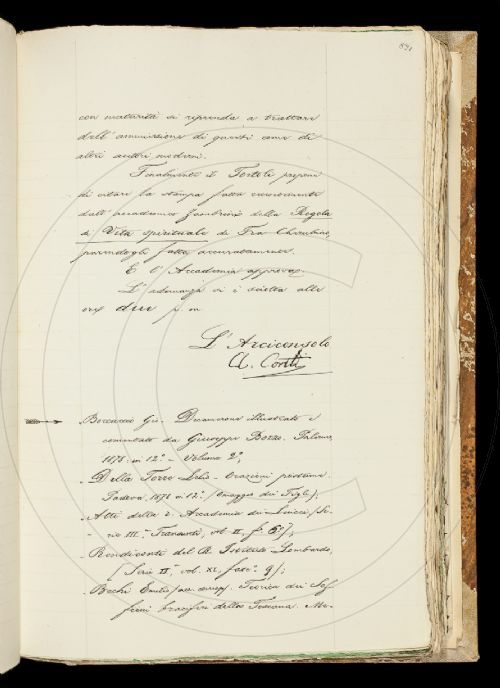 891
con maturità si riprenda a trattare
dell'ammissione di questi come di
altri autori moderni.
Finalmente il Tortoli propone
di citare la stampa fatta
dall'accademico Zambrini della Regola
di Vita spirituale di Fra Cherubino,
parendogli fatta accuratamente.
E l'Accademia approva.
L'adunanza si è sciolta alle
ore due p. m.
L'Arciconsolo
A. Conti
Boccaccio Gio. Decamerone illustrato e
comentato da Giuseppe Bozzo. Palermo,
1878. in 12.° - Volume 2°;
- Della Torre Lelio - Orazioni postume.
Padova, 1878 in 12.° (Omaggio dei Figli);
- Atti della R. Accademia dei Lincei (Se-
- rie III.ª Transunti, vol. II, f.° 6°);
- Rendiconti del R. Istituto Lombardo,
(Serie II.ª, vol. XI, fasc.° 9);
- Bechi Emilio Teorica dei Sof-
fioni boraciferi della Toscana. Me-